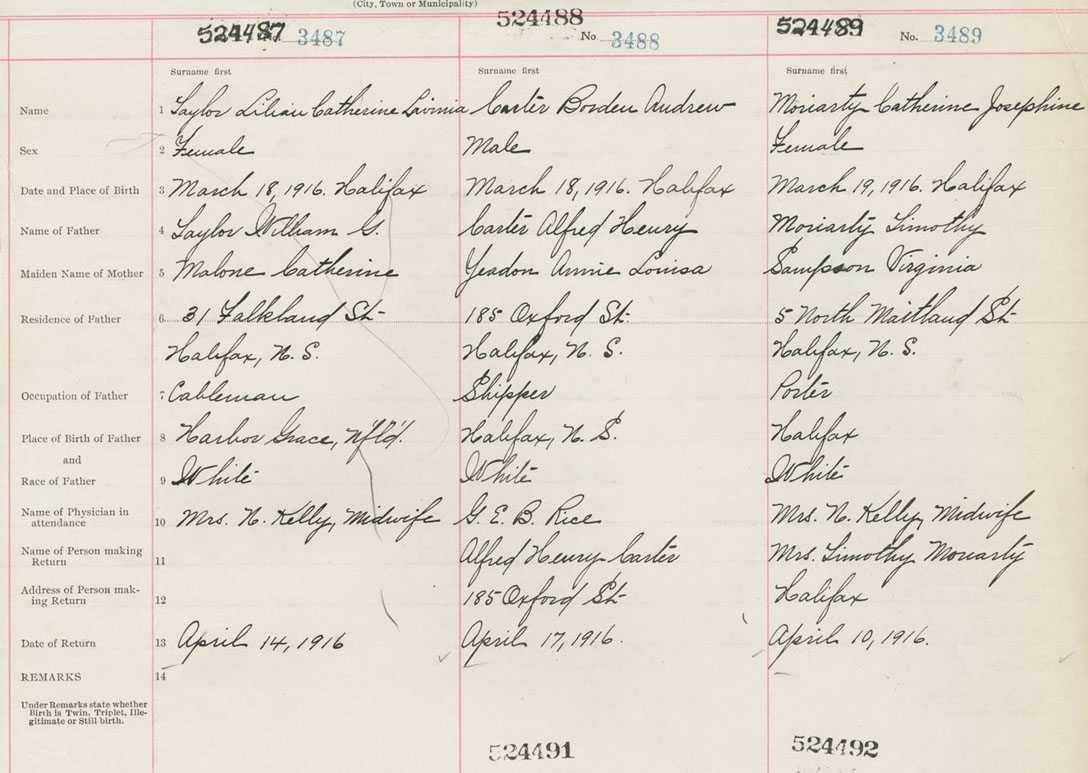 (City, Town or Municipality)
524487 No. 3487
524488 No 3488
524489 No. 3489
Surname first Surname first Surname first
Name 1 Taylor Lilian Catherine Lavinia Carter Borden Andrew Moriarty Catherine Josephine
Sex 2 Female Male Female
Date and Place of Birth 3 March 18, 1916. Halifax March 18, 1916. Halifax March 19, 1916. Halifax
Name of Father 4 Taylor William G. Carter Alfred Henry Moriarty Timothy
Maiden Name of Mother 5 Malone Catherine Yeadon Annie Louisa Sampson Virginia
Residence of Father 6 31 Falkland St. 185 Oxford St. 5 North Maitland St.
Halifax, N. S. Halifax, N. S. Halifax, N. S.
Occupation of Father 7 Cableman Shipper Porter
Place of Birth of Father 8 Harbor Grace, Nfld. Halifax, N. S. Halifax
and
Race of Father 9 White White White
Name of Physician in attendance 10 Mrs. N. Kelly, Midwife G. E. B. Rice Mrs. N. Kelly, Midwife
Name of Person making Return 11 Alfred Henry Carter Mrs. Timothy Moriarty
Address of Person mak-ing Return 12 185 Oxford St. Halifax
Date of Return 13 April 14, 1916 April 17, 1916. April 10, 1916.
REMARKS 14
Under Remarks state whether
Birth is Twin, Triplet, Ille-
gitimate or Still birth.
524491 524492